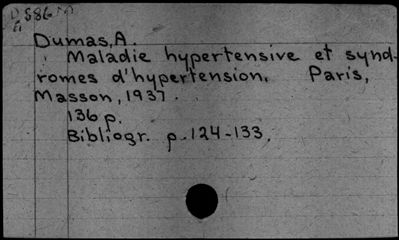 D586m
Dumas, A.
Maladie hypertensive et synd-
romes d'hypertension. Paris,
Masson, 1937.
136 p.
Bibliogr. p. 124-133.